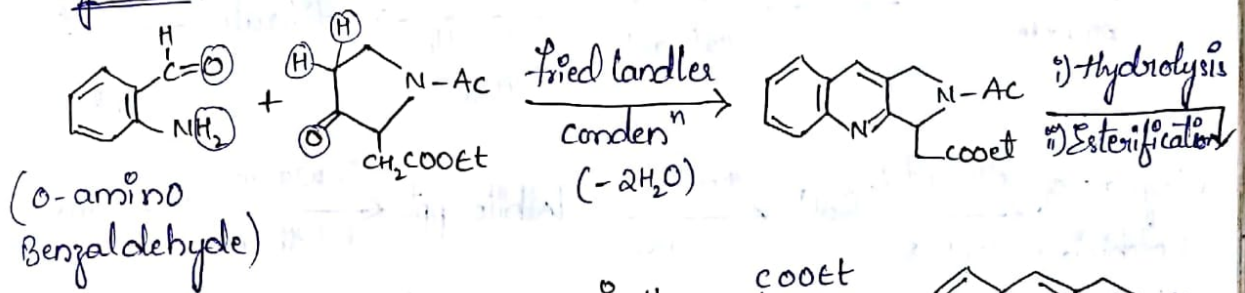 H
C=O
NH2
(o-amino
Benzaldehyde)
+
H
H
N-Ac
O
CH2COOEt
fried landler
condenⁿ
(-2H2O)
N-AC
N
cooet
i) Hydrolysis
ii) Esterification
COOEt